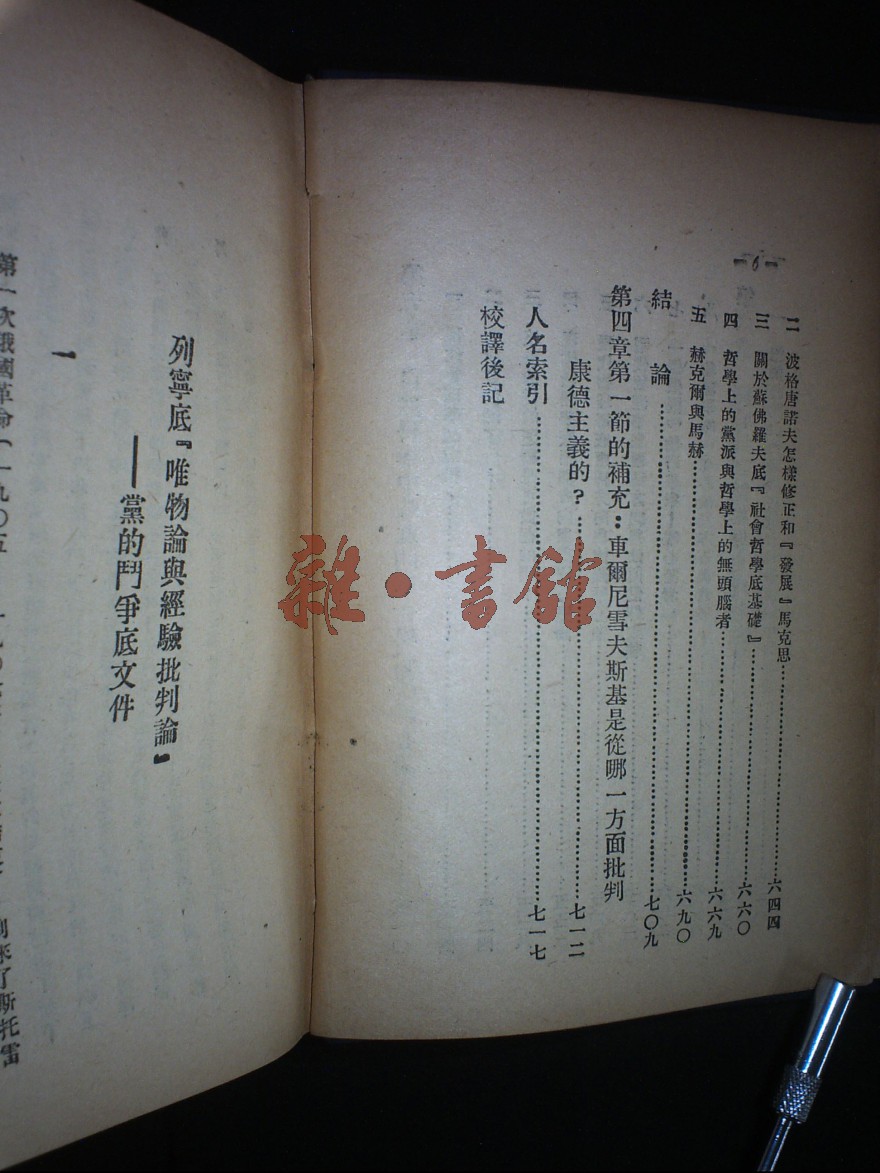 —6—
二　波格唐諾夫怎樣修正和『發展』馬克思……六四四
三　關於蘇佛羅夫底『社會哲學底基礎』……六六〇
四　哲學上的黨派與哲學上的無頭腦者……六六九
五　赫克爾與馬赫……六九〇
結　論……七〇九
第四章第一節的補充：車爾尼雪夫斯基是從哪一方面批判
康德主義的？……七一二
人名索引……七一七
校譯後記
列寧底『唯物論與經驗批判論』
——黨的鬥爭底文件
一
第一次俄國革命（一九〇五
來了斯托雷
雜·書館